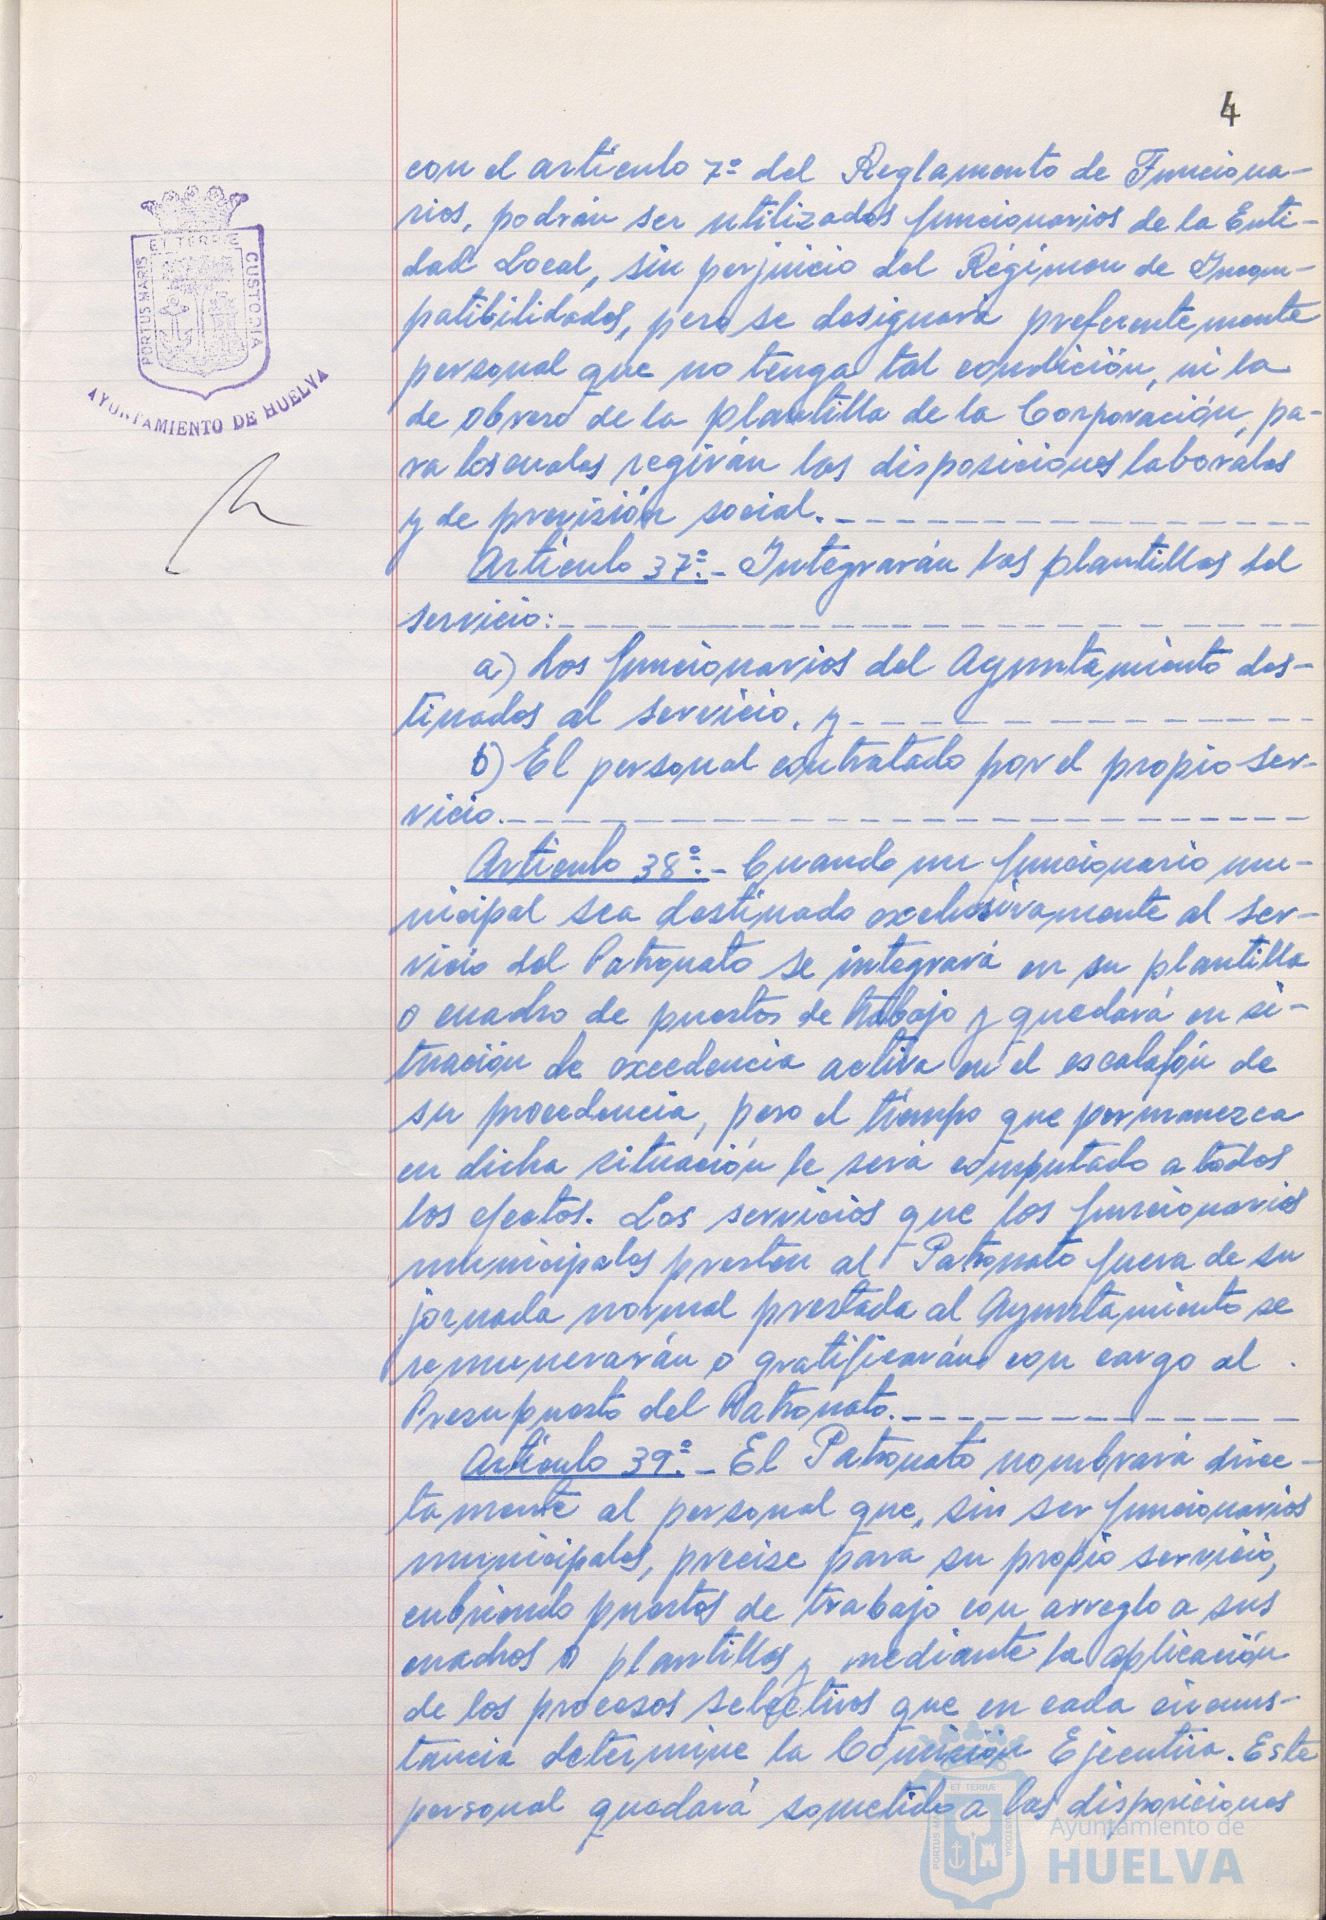 4
con el artículo 7º del Reglamento de Funciona-
rios, podrán ser utilizados funcionarios de la Enti-
dad Local, sin perjuicio del Régimen de Incom-
patibilidades, pero se designará preferentemente
personal que no tenga tal condición, ni la
de obrero de la plantilla de la Corporación, pa-
ra los cuales regirán las disposiciones laborales
y de previsión social.
Artículo 37º.- Integrarán las plantillas del
servicio:
a) Los funcionarios del Ayuntamiento des-
tinados al servicio, y
b) El personal contratado por el propio ser-
vicio.
Artículo 38º.- Cuando un funcionario mu-
nicipal sea destinado exclusivamente al ser-
vicio del Patronato se integrará en su plantilla
o cuadro de puestos de trabajo y quedará en si-
tuación de excedencia activa en el escalafón de
su procedencia, pero el tiempo que permanezca
en dicha situación le será computado a todos
los efectos. Los servicios que los funcionarios
municipales presten al Patronato fuera de su
jornada normal prestada al Ayuntamiento se
remunerarán o gratificarán con cargo al
Presupuesto del Patronato.
Artículo 39º.- El Patronato nombrará direc-
tamente al personal que, sin ser funcionarios
municipales, precise para su propio servicio,
cubriendo puestos de trabajo con arreglo a sus
cuadros o plantillas y mediante la aplicación
de los procesos selectivos que en cada circuns-
tancia determine la Comisión Ejecutiva. Este
personal quedará sometido a las disposiciones
PORTUS MARIS ET TERRÆ CUSTODIA
AYUNTAMIENTO DE HUELVA
PORTUS MARIS ET TERRÆ CUSTODIA
Ayuntamiento de
HUELVA